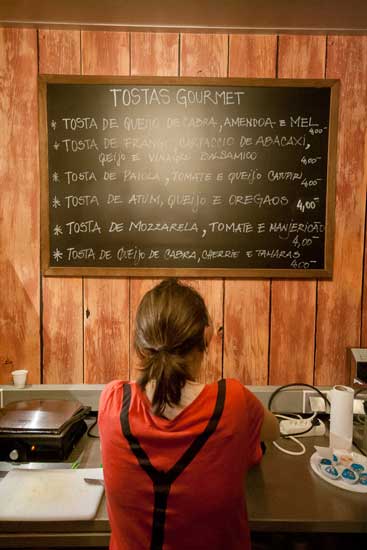 TOSTAS GOURMET
* TOSTA DE QUEIJO DE CABRA, AMENDOA E MEL 4,00
* TOSTA DE FRANGO, CARPACCIO DE ABACAXI,
QUEIJO E VINAGRE BALSAMICO 4,00
* TOSTA DE PAIOLA, TOMATE E QUEIJO 4,00
* TOSTA DE ATUM, QUEIJO E OREGAOS 4,00
* TOSTA DE MOZZARELA, TOMATE E MANJERICÃO
4,00
* TOSTA DE QUEIJO DE CABRA, CHERRIE E TAMARAS
4,00